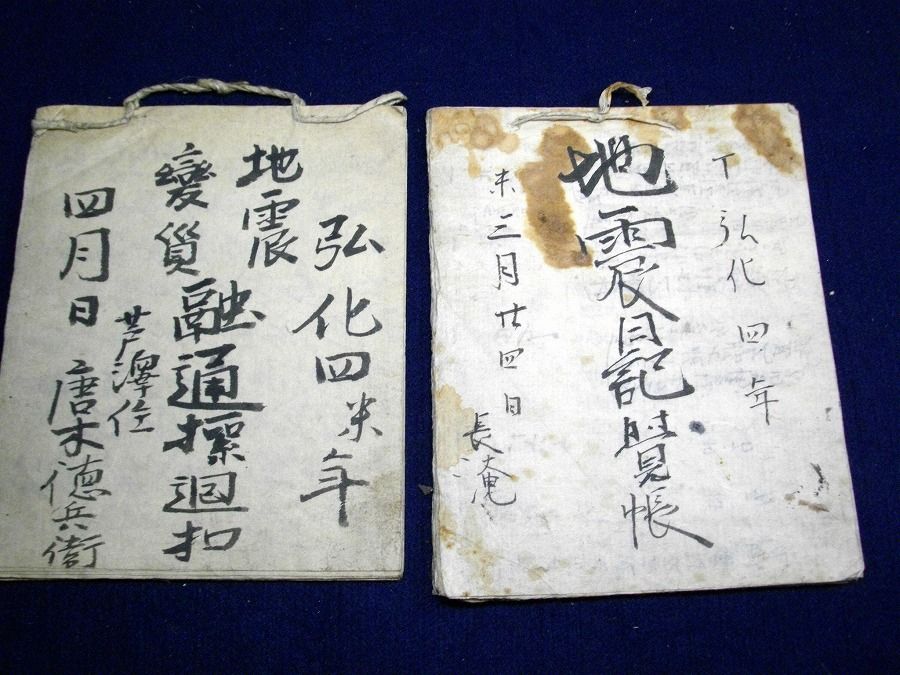 弘化四未年
地震
變質融通操廻扣
四月日
芦澤住
唐木徳兵衛
丁弘化四年
地震日記覺帳
未三月廿四日
長淹